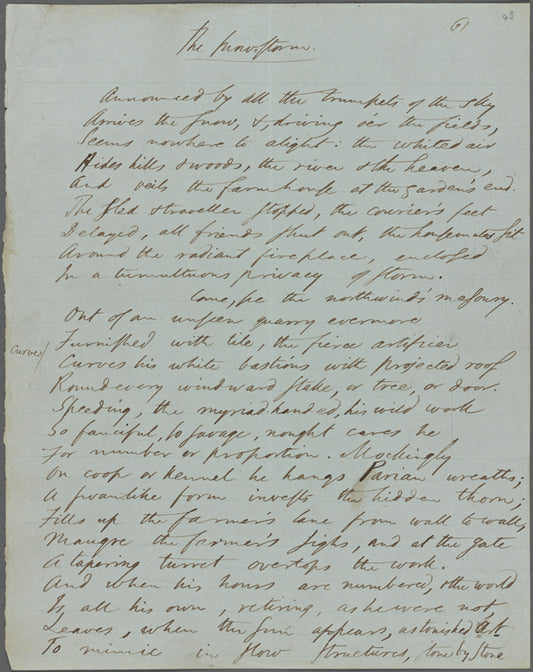 61
43
The Snow-Storm.
Announced by all the trumpets of the sky
Arrives the snow, &, driving o'er the fields,
Seems nowhere to alight: the whited air
Hides hills & woods, the river & the heaven,
And veils the farmhouse at the garden's end.
The sled & traveller stopped, the courier's feet
Delayed, all friends shut out, the housemates sit
Around the radiant fireplace, enclosed
In a tumultuous privacy of storm.
Come, see the northwind's masonry.
Out of an unseen quarry evermore
Furnished with tile, the fierce artificer
Curves/
Curves his white bastions with projected roof
Round every windward stake, or tree, or door.
Speeding, the myriadhanded, his wild work
So fanciful, so savage, nought cares he
For number or proportion. Mockingly
On coop or kennel he hangs Parian wreaths;
A swanlike form invests the hidden thorn;
Fills up the farmer's lane from wall to wall,
Maugre the farmer's sighs, and at the gate
A tapering turret overtops the work.
And when his hours are numbered, & the world
Is all his own, retiring, as he were not,
Leaves, when the sun appears, astonished Art
To mimic in slow structures, stone by stone